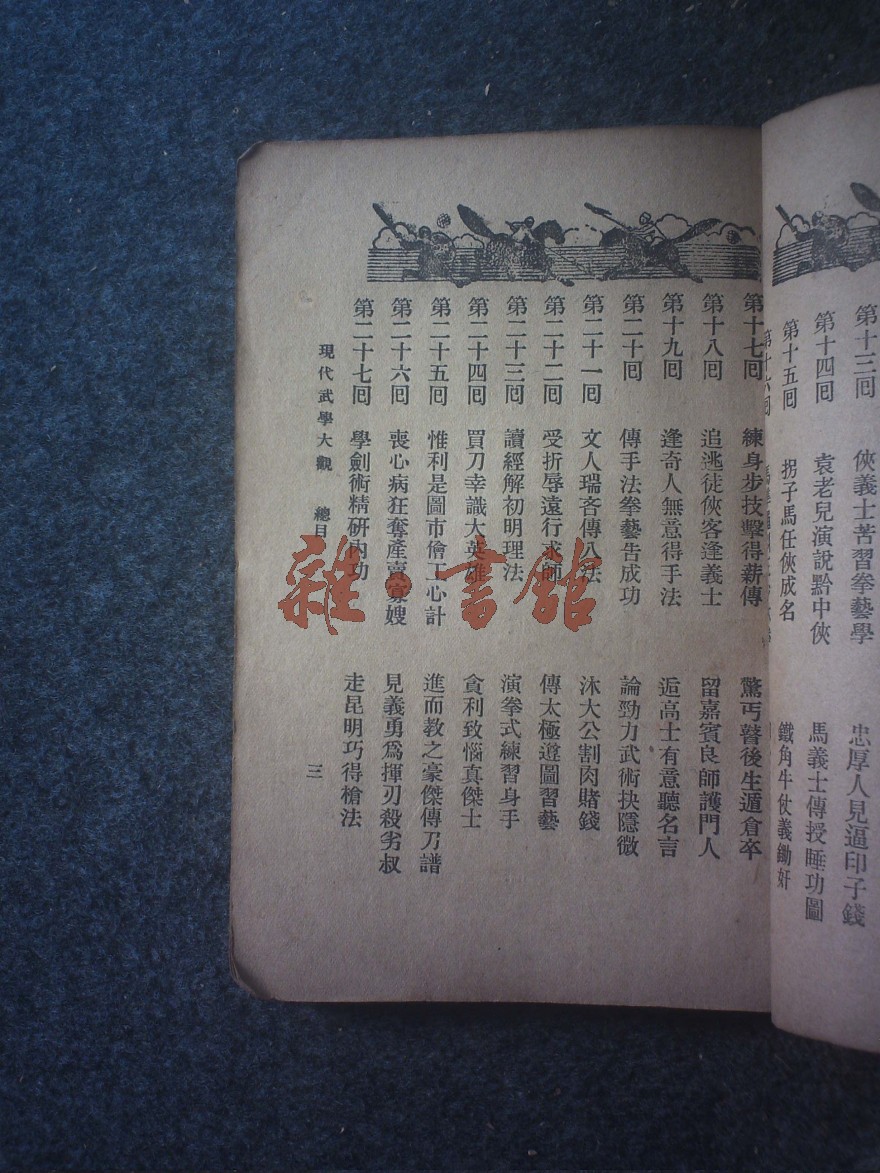 第十三回 俠義士苦習拳藝學 忠厚人見逼印子錢
第十四回 袁老兒演說黔中俠 馬義士傳授睡功圖
第十五回 拐子馬任俠成名 鐵角牛仗義鋤奸
第十六回
第十七回 練身步技擊得薪傳 驚丐瞽後生遁倉卒
第十八回 追逃徒俠客逢義士 留嘉賓良師護門人
第十九回 逢奇人無意得手法 逅高士有意聽名言
第二十回 傳手法拳藝告成功 論勁力武術抉隱微
第二十一回 文人瑞吝傳八法 沐大公割肉賭錢
第二十二回 受折辱遠行求師 傳太極遵圖習藝
第二十三回 讀經解初明理法 演拳式練習身手
第二十四回 買刀幸識大英雄 貪利致惱真傑士
第二十五回 惟利是圖市儈工心計 進而教之豪傑傳刀譜
第二十六回 喪心病狂奪產賣寡嫂 見義勇爲揮刃殺劣叔
第二十七回 學劍術精研內功 走昆明巧得槍法
現代武學大觀 總目 三
雜·書館